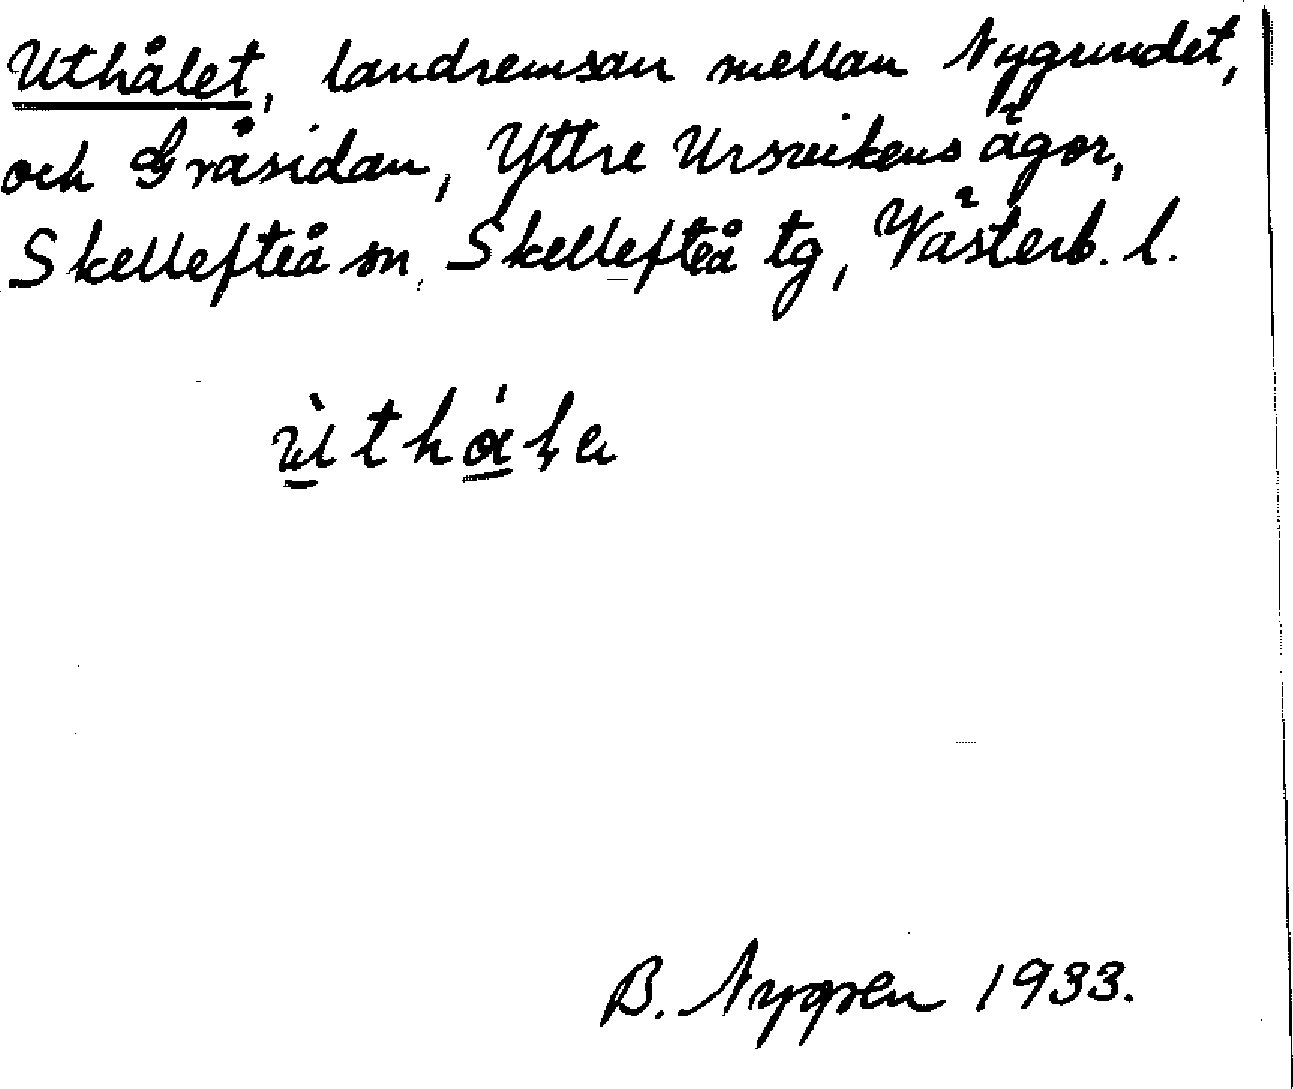 Uthålet, landremsan mellan Nygrundet,
och Gråsidan, Yttre Ursvikens ägor,
Skellefteå sn, Skellefteå tg, Västerb. l.
B. Nygren 1933.